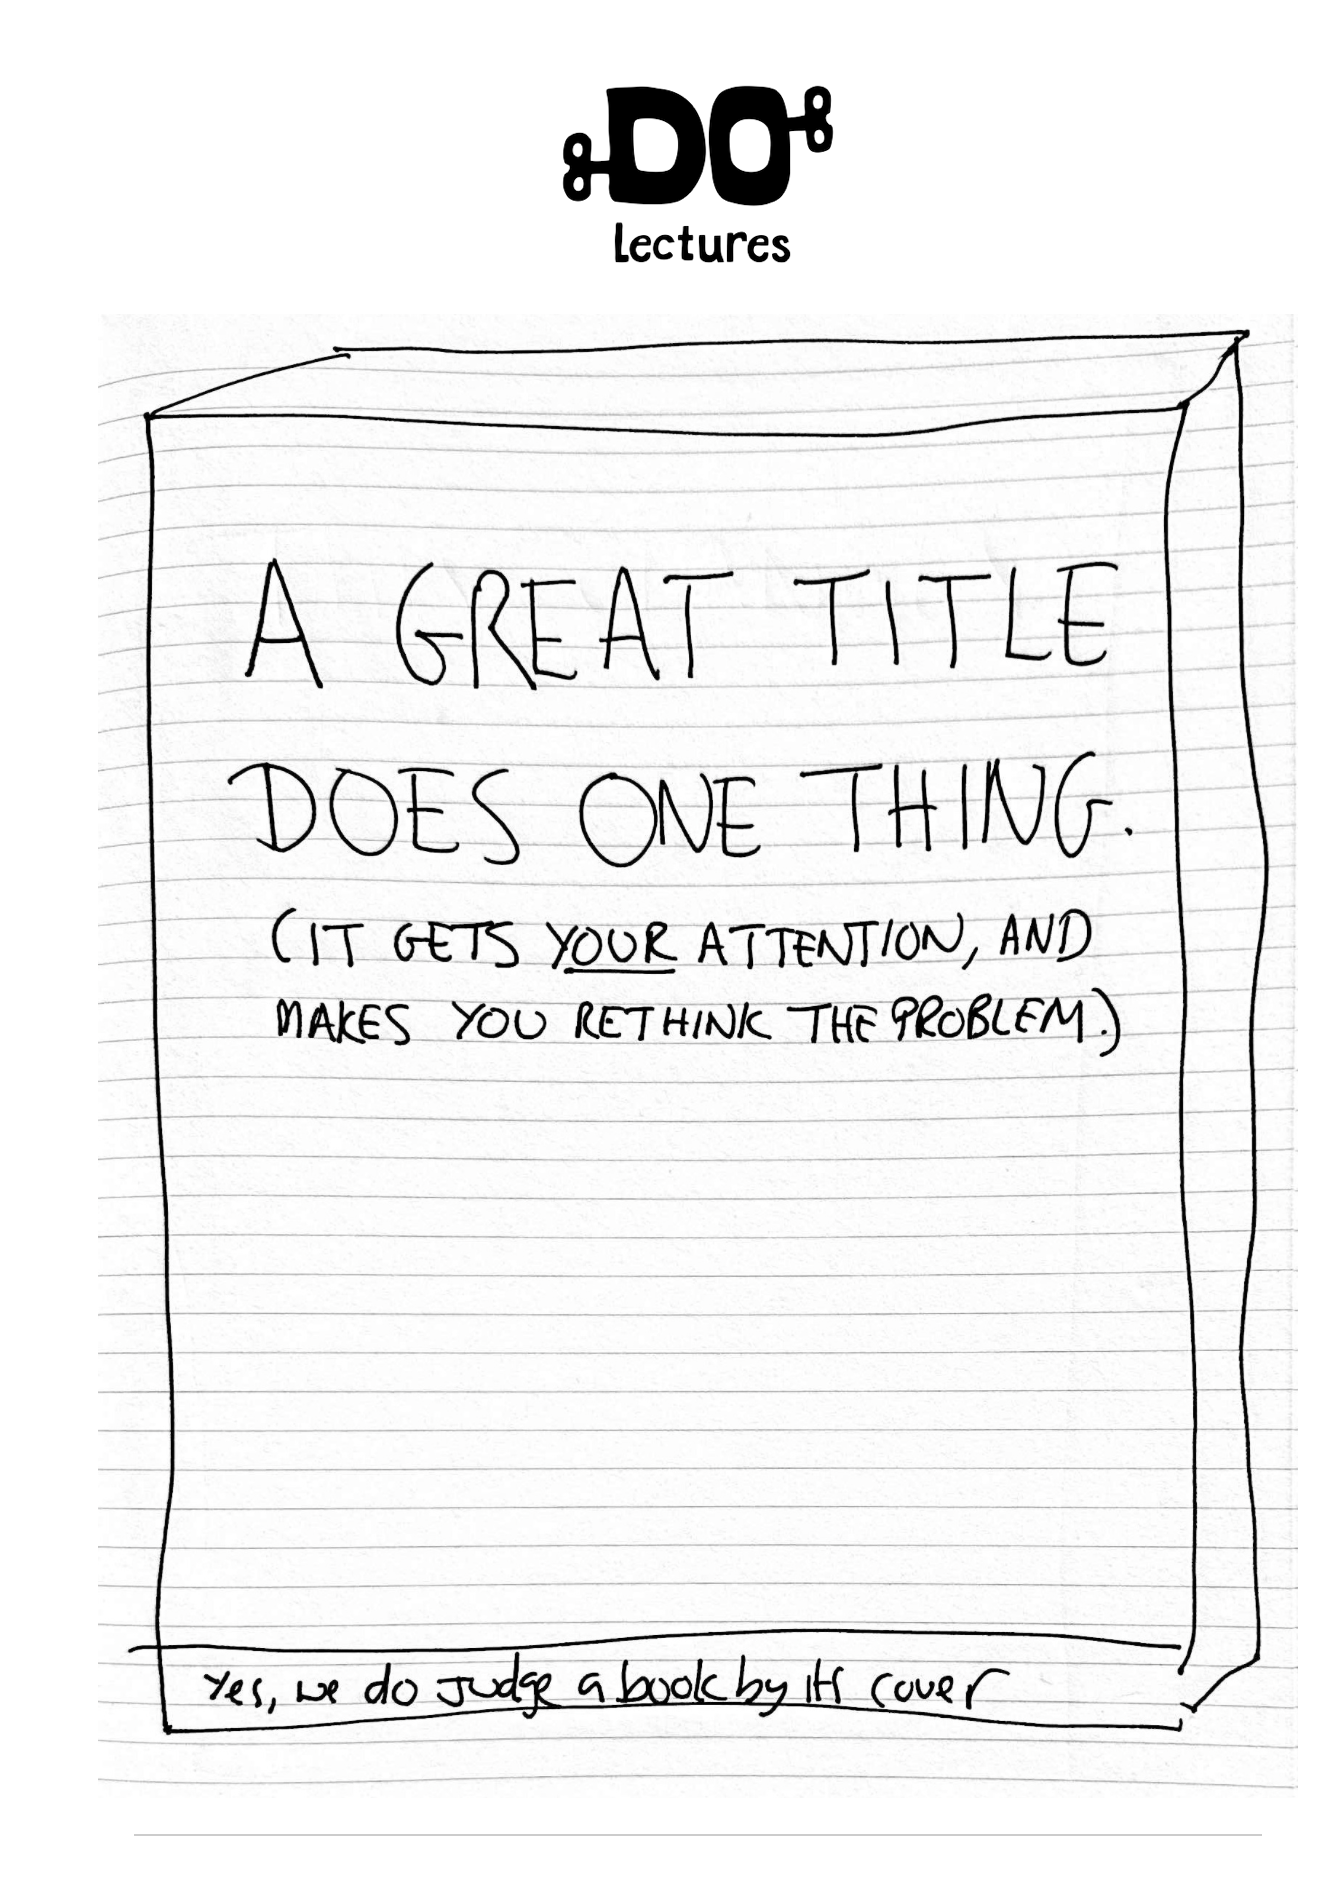 DO
Lectures
A GREAT TITLE
DOES ONE THING.
(IT GETS YOUR ATTENTION, AND
MAKES YOU RETHINK THE PROBLEM.)
Yes, we do judge a book by its cover